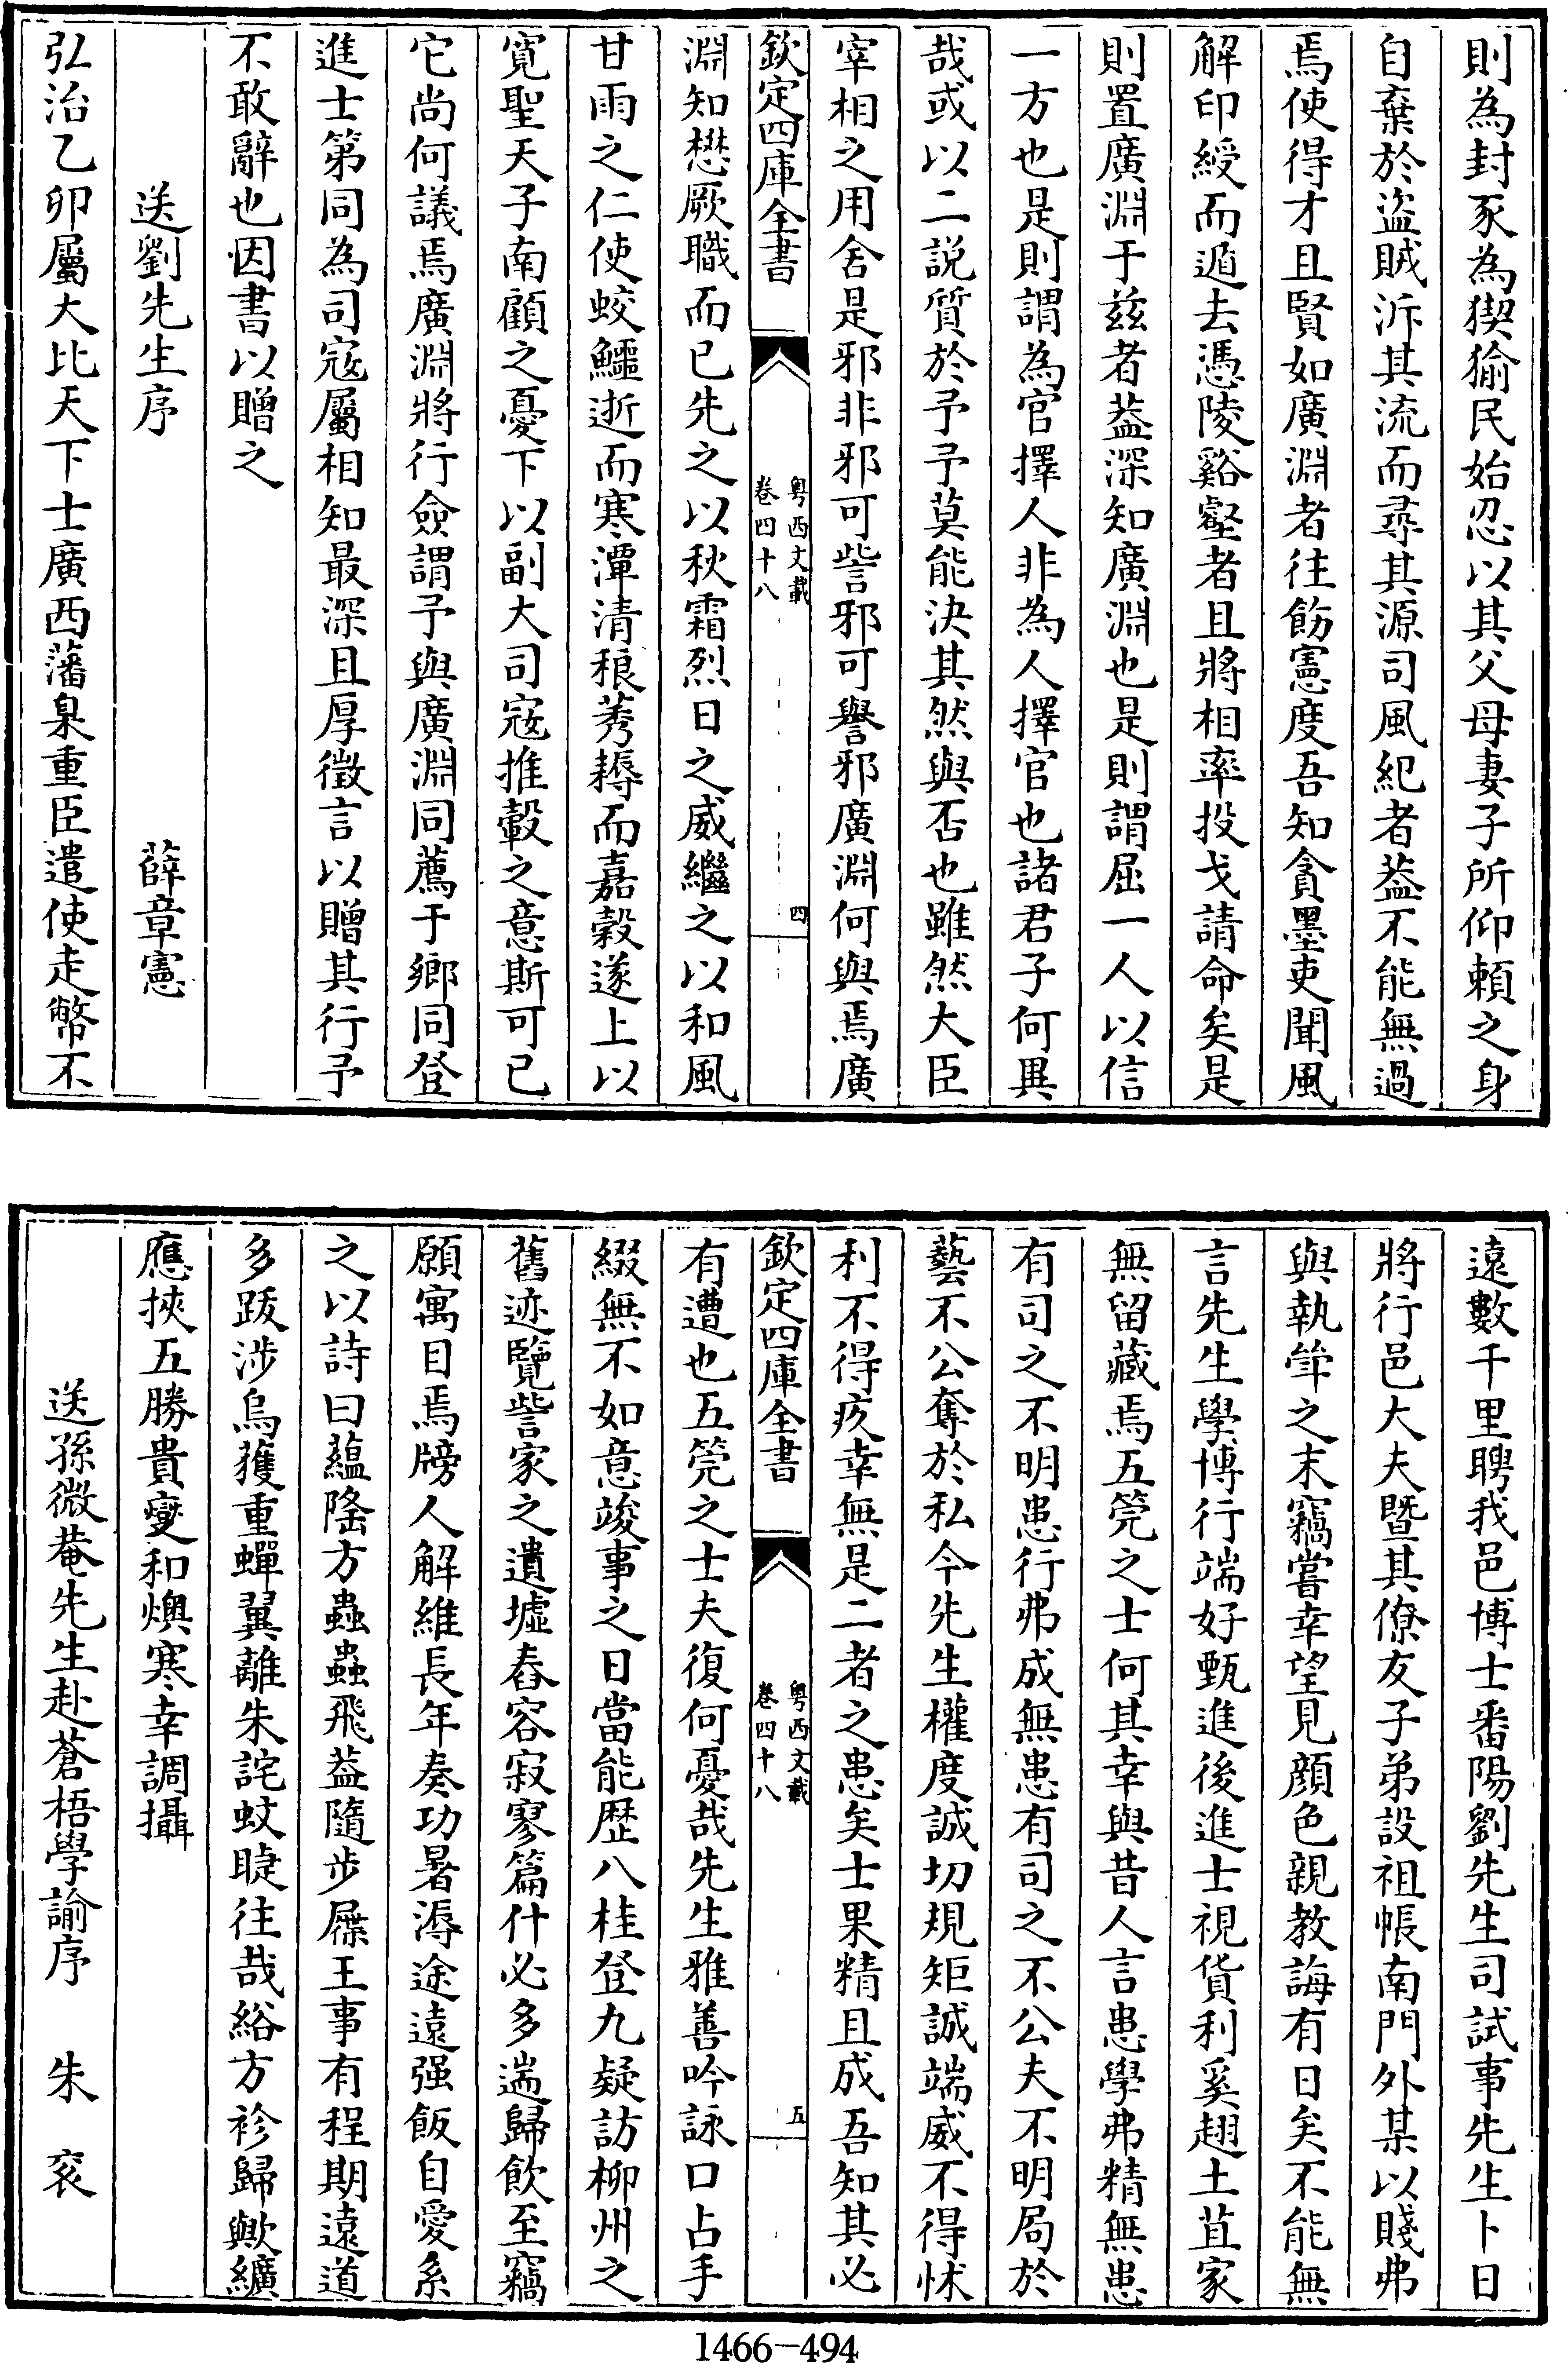 則為封豕為猰㺄民始忍以其父母妻子所仰賴之身
自棄於盜賊泝其流而尋其源司風紀者葢不能無過
焉使得才且賢如廣淵者往飭憲度吾知貪墨吏聞風
解印綬而遁去憑陵谿壑者且將相率投戈請命矣是
則置廣淵于兹者葢深知廣淵也是則謂屈一人以信
一方也是則謂為官擇人非為人擇官也諸君子何異
哉或以二説質於予予莫能決其然與否也雖然大臣
宰相之用舍是邪非邪可訾邪可譽邪廣淵何與焉廣
欽定四庫全書
粤西文載
卷四十八
四
淵知懋厥職而已先之以秋霜烈日之威繼之以和風
甘雨之仁使蛟鱷逝而寒潭清稂莠耨而嘉穀遂上以
寛聖天子南顧之憂下以副大司寇推轂之意斯可已
它尚何議焉廣淵將行僉謂予與廣淵同薦于鄉同登
進士第同為司寇屬相知最深且厚徵言以贈其行予
不敢辭也因書以贈之
送劉先生序
薛章憲
弘治乙卯屬大比天下士廣西藩臬重臣遣使走幣不
遠數千里聘我邑博士番陽劉先生司試事先生卜日
將行邑大夫暨其僚友子弟設祖帳南門外某以賤弗
與執筆之末竊嘗幸望見顔色親教誨有日矣不能無
言先生學博行端好甄進後進士視貨利奚趐土苴家
無留藏焉五筦之士何其幸與昔人言患學弗精無患
有司之不明患行弗成無患有司之不公夫不明局於
藝不公奪於私今先生權度誠切規矩誠端威不得怵
利不得疚幸無是二者之患矣士果精且成吾知其必
欽定四庫全書
粤西文載
卷四十八
五
有遭也五筦之士夫復何憂哉先生雅善吟詠口占手
綴無不如意竣事之日當能歴八桂登九疑訪柳州之
舊迹覽訾家之遺墟舂容寂寥篇什必多遄歸飲至竊
願寓目焉牓人解維長年奏功暑溽途遠强飯自愛系
之以詩曰藴隆方蟲蟲飛葢隨步屧王事有程期遠道
多跋涉烏獲重蟬翼離朱詫蚊睫往哉綌方袗歸歟纊
應挾五勝貴變和燠寒幸調攝
送孫微菴先生赴蒼梧學諭序
朱衮
1466-494